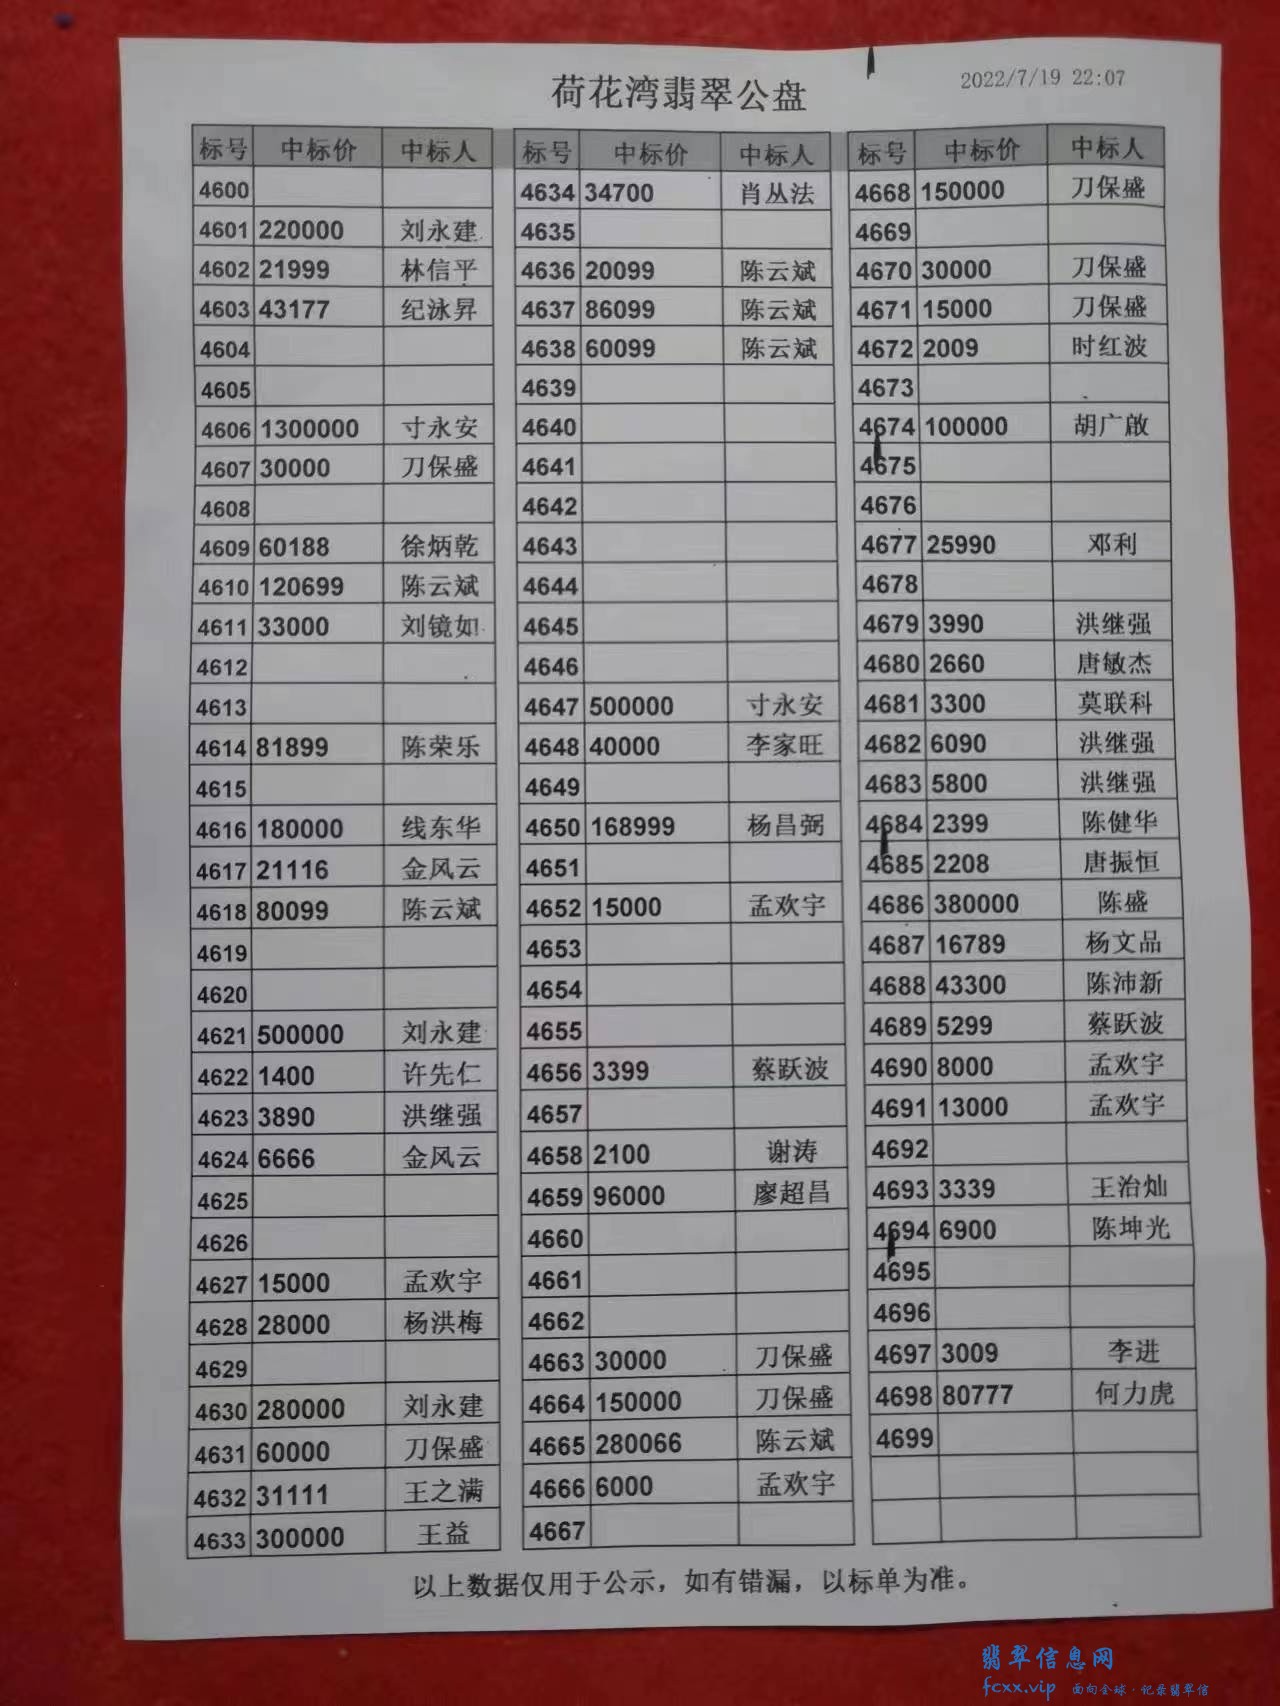 荷花湾翡翠公盘
2022/7/19 22:07
标号 中标价 中标人
4600
4601 220000 刘永建
4602 21999 林信平
4603 43177 纪泳昇
4604
4605
4606 1300000 寸永安
4607 30000 刀保盛
4608
4609 60188 徐炳乾
4610 120699 陈云斌
4611 33000 刘镜如
4612
4613
4614 81899 陈荣乐
4615
4616 180000 线东华
4617 21116 金风云
4618 80099 陈云斌
4619
4620
4621 500000 刘永建
4622 1400 许先仁
4623 3890 洪继强
4624 6666 金风云
4625
4626
4627 15000 孟欢宇
4628 28000 杨洪梅
4629
4630 280000 刘永建
4631 60000 刀保盛
4632 31111 王之满
4633 300000 王益
标号 中标价 中标人
4634 34700 肖丛法
4635
4636 20099 陈云斌
4637 86099 陈云斌
4638 60099 陈云斌
4639
4640
4641
4642
4643
4644
4645
4646
4647 500000 寸永安
4648 40000 李家旺
4649
4650 168999 杨昌弼
4651
4652 15000 孟欢宇
4653
4654
4655
4656 3399 蔡跃波
4657
4658 2100 谢涛
4659 96000 廖超昌
4660
4661
4662
4663 30000 刀保盛
4664 150000 刀保盛
4665 280066 陈云斌
4666 6000 孟欢宇
4667
标号 中标价 中标人
4668 150000 刀保盛
4669
4670 30000 刀保盛
4671 15000 刀保盛
4672 2009 时红波
4673
4674 100000 胡广啟
4675
4676
4677 25990 邓利
4678
4679 3990 洪继强
4680 2660 唐敏杰
4681 3300 莫联科
4682 6090 洪继强
4683 5800 洪继强
4684 2399 陈健华
4685 2208 唐振恒
4686 380000 陈盛
4687 16789 杨文品
4688 43300 陈沛新
4689 5299 蔡跃波
4690 8000 孟欢宇
4691 13000 孟欢宇
4692
4693 3339 王治灿
4694 6900 陈坤光
4695
4696
4697 3009 李进
4698 80777 何力虎
4699
以上数据仅用于公示，如有错漏，以标单为准。
翡翠信息网
fcxx.vip 面向全球·记录翡翠信